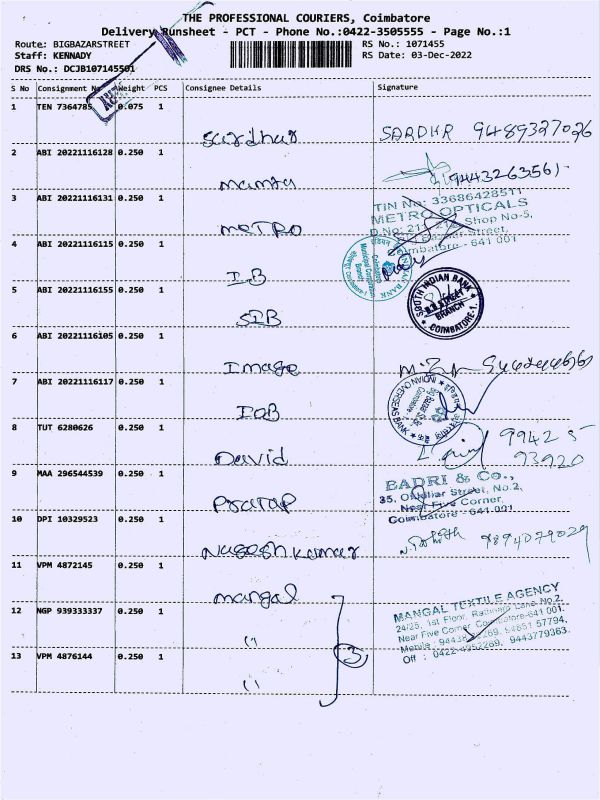 THE PROFESSIONAL COURIERS, Coimbatore
Delivery Runsheet - PCT - Phone No.:0422-3505555 - Page No.:1
Route: BIGBAZARSTREET
RS No.: 1071455
Staff: KENNADY
RS Date: 03-Dec-2022
DRS No.: DCJB107145501
S No Consignment No Weight PCS Consignee Details Signature
1 TEN 7364785 0.075 1 Sardhar SARDHR 9489327026
2 ABI 20221116128 0.250 1 mamta 9443263561
3 ABI 20221116131 0.250 1 METRO
TIN No: 33686428511
METRO OPTICALS
Shop No-5,
Street,
Coimbatore - 641 001
4 ABI 20221116115 0.250 1 IB
INDIAN BANK
5 ABI 20221116155 0.250 1 SIB
SOUTH INDIAN BANK
B.B STREET
BRANCH
COIMBATORE-1.
6 ABI 20221116105 0.250 1 Image
7 ABI 20221116117 0.250 1 IOB
INDIAN OVERSEAS BANK
8 TUT 6280626 0.250 1 David 99425
93920
9 MAA 296544539 0.250 1 Pratap
BADRI & Co.,
35, Street, No.2,
Near Five Corner,
Coimbatore - 641 001
10 DPI 10329523 0.250 1 Nagesh kumar 9894079029
11 VPM 4872145 0.250 1 mangal
MANGAL TEXTILE AGENCY
24/25, 1st Floor, Lane No.2,
Near Five Corner Coimbatore-641 001
Mobile : 94851 57794,
Off : 0422-4952269, 9443779363.
12 NGP 939333337 0.250 1 "
13 VPM 4876144 0.250 1 "
3